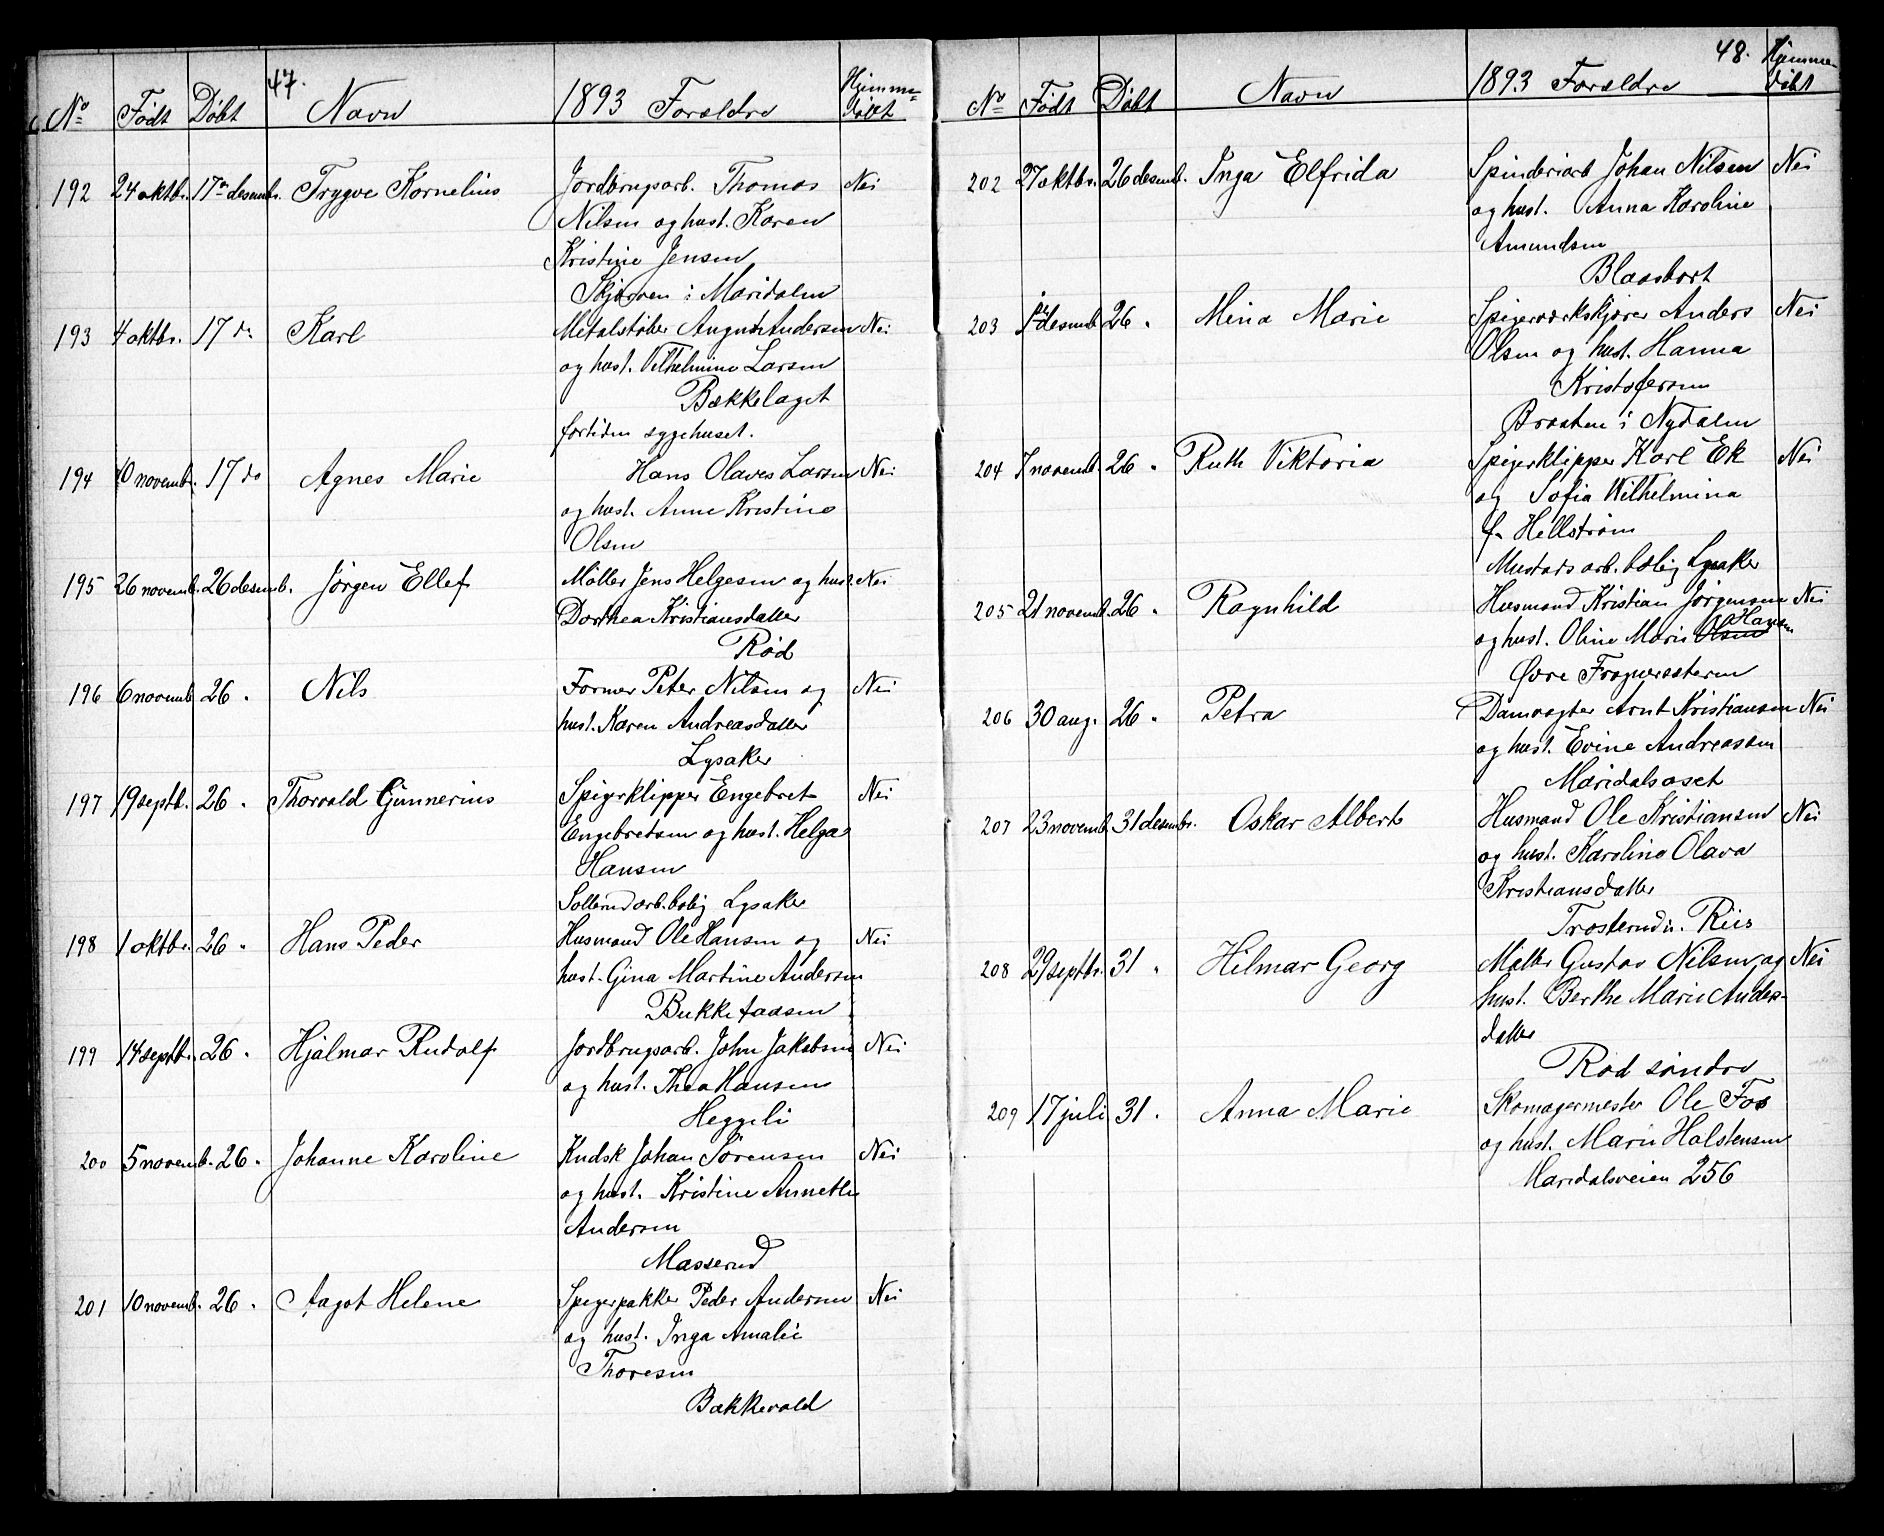 47.
No Født Døbt Navn 1893 Forældre Hjemmedøbt
192 24 oktbr. 17de desembr. Trygve Kornelius Jordbrugsarb. Thomas Nei
Nilsen og hust. Karen
Kristine Jensen
Skjerven i Maridalen
193 4 oktbr. 17 do Karl Metalstøber August Andersen Nei
og hust. Vilhelmine Larsen
Bækkelaget
fortiden sygehuset.
194 10 novembr. 17 do Agnes Marie Hans Olaves Larsen Nei
og hust. Anne Kristine
Olsen
195 26 novemb. 26 desemb. Jørgen Ellef Møller Jens Helgesen og hust. Nei
Dorthea Kristiansdatter
Rød
196 6 novemb. 26 " Nils Former Peter Nilsen og Nei
hust. Karen Andreasdatter
Lysaker
197 19 septb. 26 " Thorvald Gunnerius Spigerklipper Engebret Nei
Engebretsen og hust. Helga
Hansen
Sollerud arb.bolig Lysaker
198 1 oktbr. 26 " Hans Peder Husmand Ole Hansen og Nei
hust. Gina Martine Andersen
Bukkefaasen
199 14 septb. 26 " Hjalmar Rudolf Jordbrugsarb. John Jakobsen Nei
og hust. Thea Hansen
Heggeli
200 5 novemb. 26 " Johanne Karoline Kudsk Johan Sørensen Nei
og hust. Kristine Annette
Andersen
Masserud
201 10 novemb. 26 " Aagot Helene Spigerpakker Peder Andersen Nei
og hust. Inga Amalie
Thoresen
Bakkevold
48.
No Født Døbt Navn 1893 Forældre Hjemmedøbt
202 27 oktbr. 26 desemb. Inga Elfrida Spinderiarb Johan Nilsen Nei
og hust. Anna Karoline
Amundsen
Blaasbort
203 1 desemb 26 " Mina Marie Spigerværkskjører Anders Nei
Olsen og hust. Hanna
Kristofersen
Braaten i Nydalen
204 7 novemb. 26 " Ruth Viktoria Spigerklipper Karl Ek Nei
og Sofia Wilhelmina
f. Hellstrøm
Mustads arb. bolig Lysaker
205 21 novemb. 26 " Ragnhild Husmand Kristian Jørgensen Nei
og hust. Oline Marie Olsen Hansen
Øvre Frognersæteren
206 30 aug. 26 " Petra Damvogter Arnt Kristiansen Nei
og hust. Evine Andreassen
Maridalsoset
207 23 novemb. 31 desembr. Oskar Albert Husmand Ole Kristiansen Nei
og hust. Karoline Olava
Kristiansdatter
Trosterud u. Riis
208 29 septbr. 31 " Hilmar Georg Møller Gustav Nilsen og Nei
hust. Berthe Marie Anders-
datter
Rød søndre
209 17 juli 31 " Anna Marie Skomagermester Ole Fos
og hust. Marie Halstensen
Maridalsveien 256